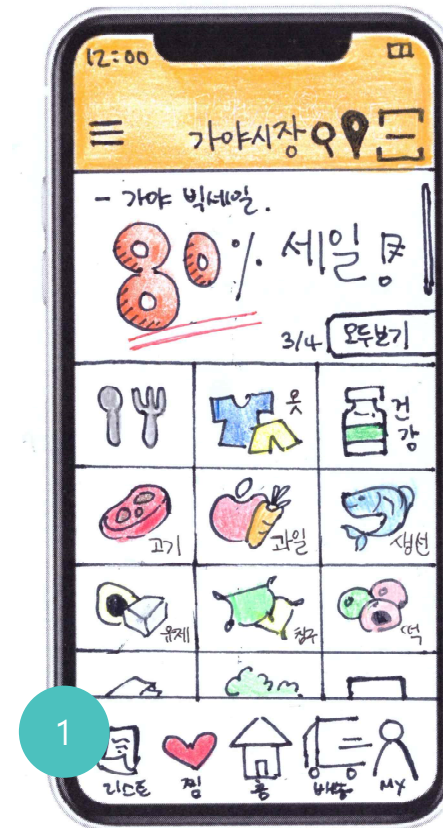 12:00
가야시장
- 가야 빅세일.
80% 세일!
3/4 모두보기
옷
건강
고기
과일
생선
유제
침구
떡
1
리스트
찜
홈
배송
MY